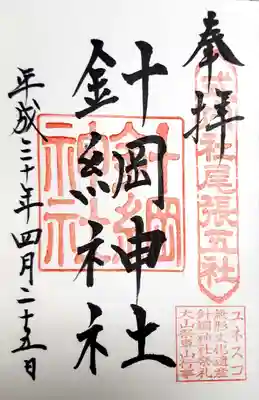 奉拝
式内社尾張五社
針綱神社
針綱
神社
平成三十年四月二十五日
ユネスコ
無形文化遺産
針綱神社祭礼
犬山祭車山行事